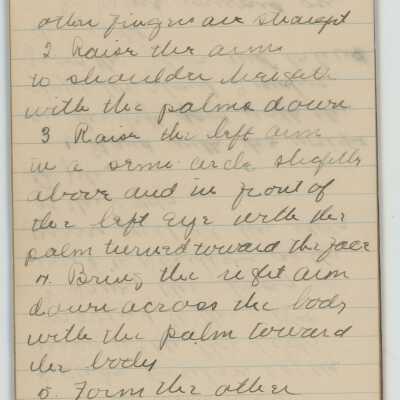 other fingers are straight
2 Raise the arms
to shoulder height
with the palms down
3 Raise the left arm
in a semi circle slightly
above and in front of
the left eye with the
palm turned toward the face
4. Bring the right arm
down across the body
with the palm toward
the body
5. Form the other